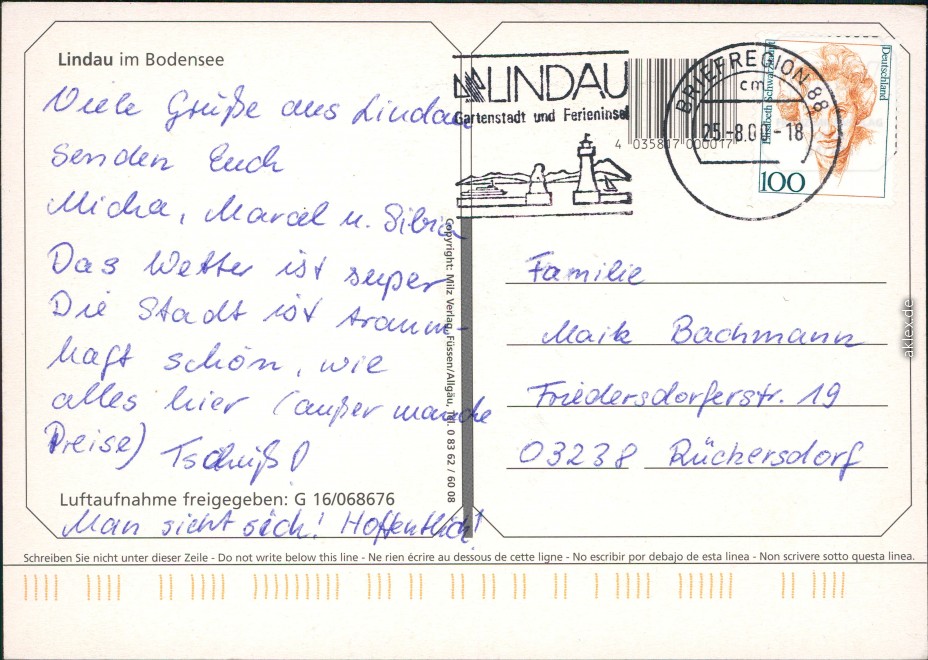 Lindau im Bodensee
Viele Grüße aus Lindau
senden Euch
Micha, Marcel u. Silvia
Das Wetter ist super
Die Stadt ist traum-
haft schön, wie
alles hier (außer manche
Preise) Tschüß!
Luftaufnahme freigegeben: G 16/068676
Man sieht sich! Hoffentlich!
Copyright: Milz Verlag, Füssen/Allgäu, Tel. 0 83 62 / 60 08
LINDAU
Gartenstadt und Ferieninsel
4 035817 000017
BRIEFREGION 88
cm
25.-8.0 -18
Deutschland
Elisabeth Schwarzhaupt
100
Familie
Maik Bachmann
Friedersdorferstr. 19
03238 Rückersdorf
Schreiben Sie nicht unter dieser Zeile - Do not write below this line - Ne rien écrire au dessous de cette ligne - No escribir por debajo de esta linea - Non scrivere sotto questa linea.
aklex.de